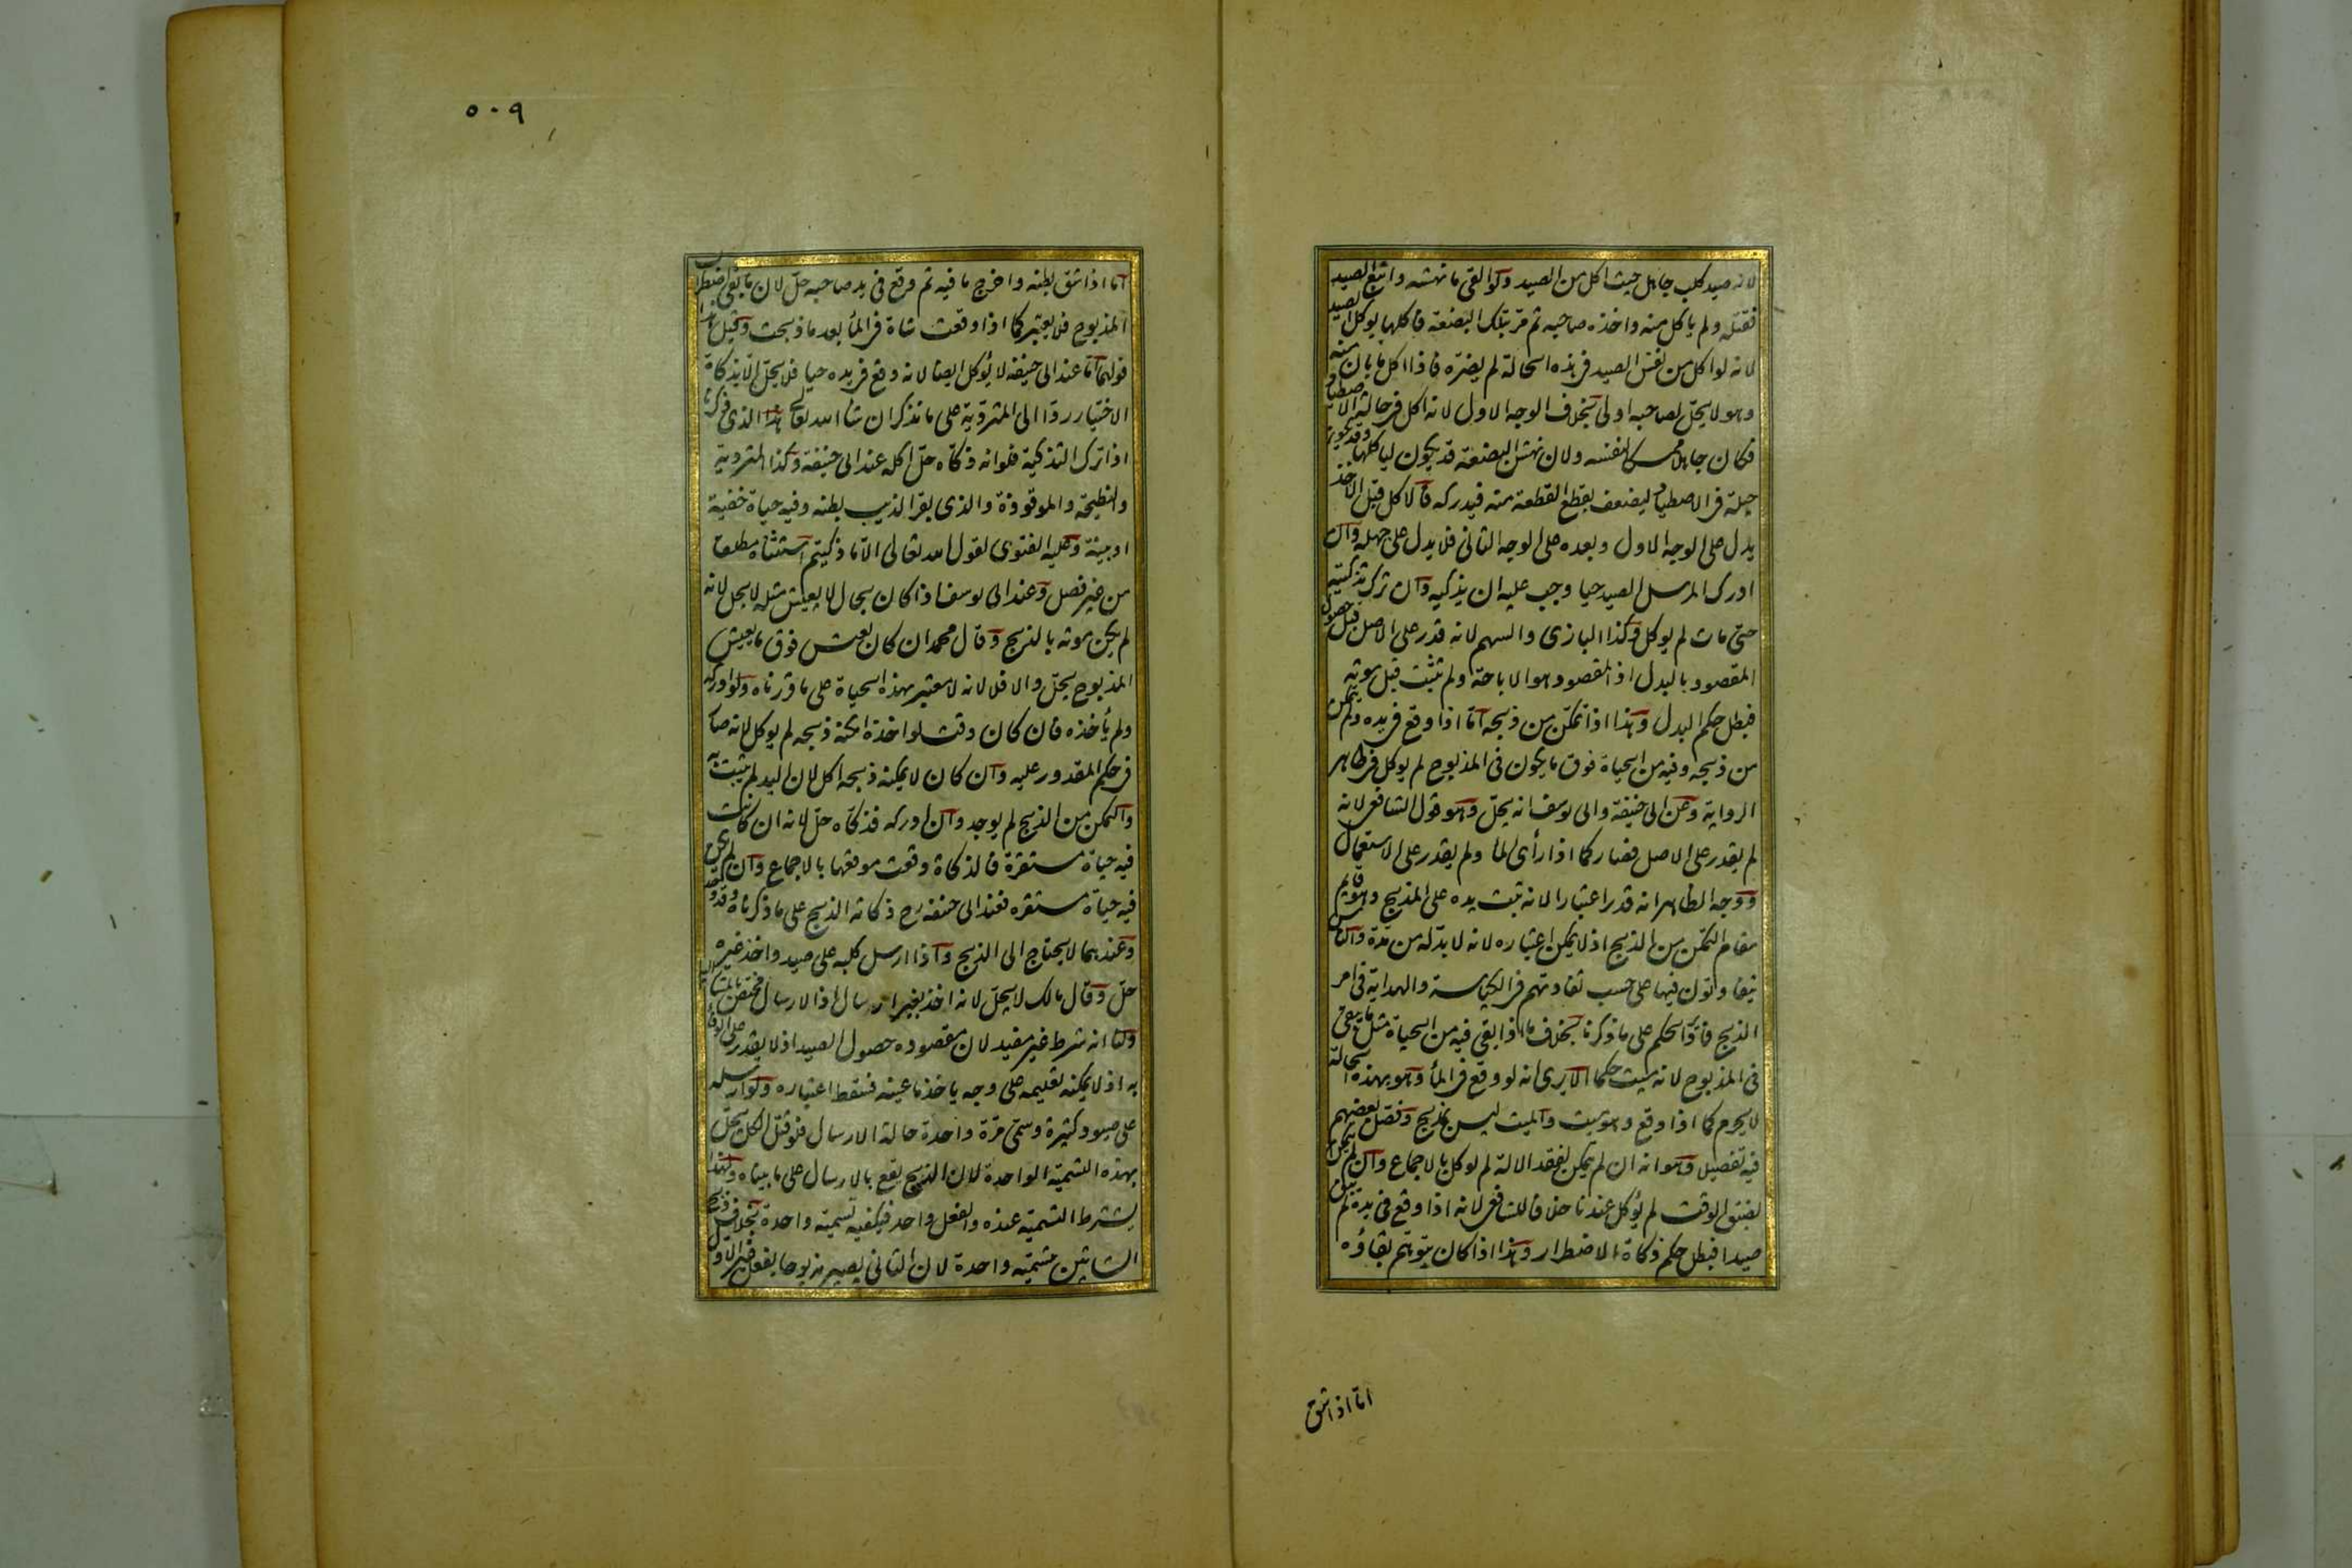 لانه صيد كلب جاهل حيث اكل من الصيد ولو القى ما نهشه واتبع الصيد
فقتله ولم ياكل منه واخذه صاحبه ثم مر بتلك البضعة فاكلها يوكل الصيد
لانه لو اكل من نفس الصيد فى هذه الحالة لم يضره فاذا اكل ما بان منه
وهو لا يحل لصاحبه اولى بخلاف الوجه الاول لانه اكل فى حالة الاصطياد
فكان جاهلا ممسكا لنفسه ولان نهش البضعة قد يكون لياكلها وقد يكون
حيلة فى الاصطياد ليضعف بقطع القطعة منه فيدركه فالاكل قبل الاخذ
يدل على الوجه الاول وبعده على الوجه الثانى فلا يدل على جهله وان
ادرك المرسل الصيد حيا وجب عليه ان يذكيه وان ترك تذكيته
حتى مات لم يوكل وكذا البازى والسهم لانه قدر على الاصل قبل حصول
المقصود بالبدل اذ المقصود هو الاباحة ولم تثبت قبل موته
فبطل حكم البدل وهذا اذا تمكن من ذبحه اما اذا وقع فى يده ولم يتمكن
من ذبحه وفيه من الحياة فوق ما يكون فى المذبوح لم يوكل فى ظاهر
الرواية وعن ابى حنيفة وابى يوسف انه يحل وهو قول الشافعى لانه
لم يقدر على الاصل فصار كما اذا رأى الماء ولم يقدر على الاستعمال
ووجه الظاهر انه قدر اعتبارا لانه ثبت يده على المذبح وهو قايم
مقام التمكن من الذبح اذ لا يمكن اعتباره لانه لا بد له من مدة والناس
يتفاوتون فيها على حسب تفاوتهم فى الكياسة والهداية فى امر
الذبح فادير الحكم على ما ذكرنا بخلاف ما اذا بقى فيه من الحياة مثل ما يبقى
فى المذبوح لانه ميت حكما الا يرى انه لو وقع فى الماء وهو بهذه الحالة
لا يحرم كما اذا وقع وهو ميت والميت ليس بمذبح وفصل بعضهم
فيه تفصيل وهو انه ان لم يتمكن لفقد الالة لم يوكل بالاجماع وان لم يتمكن
لضيق الوقت لم يؤكل عندنا خلافا للشافعى لانه اذا وقع فى يده لم يبق
صيدا فبطل حكم ذكاة الاضطرار وهذا اذا كان يتوهم بقاؤه
اما اذا شق
٥٠٩
اما اذا شق بطنه واخرج ما فيه ثم وقع فى يد صاحبه حل لان ما بقى اضطراب
المذبوح فلا يعتبر كما اذا وقعت شاة فى الماء بعد ما ذبحت وقيل هذا
قولهما اما عند ابى حنيفة لا يؤكل ايضا لانه وقع فى يده حيا فلا يحل الا بذكاة
الاختيار ردا الى المتردية على ما نذكر ان شاء الله تعالى هذا الذى ذكرنا
اذا ترك التذكية فلو انه ذكاه حل اكله عند ابى حنيفة وكذا المتردية
والنطيحة والموقوذة والذى بقر الذيب بطنه وفيه حياة خفية
او بينة وعليه الفتوى لقول الله تعالى الا ما ذكيتم استثناه مطلقا
من غير فصل وعند ابى يوسف اذا كان بحال لا يعيش مثله لا يحل لانه
لم يكن موته بالذبح وقال محمد ان كان يعيش فوق ما يعيش
المذبوح يحل والا فلا لانه لا معتبر بهذه الحياة على ما قررناه ولو ادركه
ولم يأخذه فان كان وقت لو اخذه امكنه ذبحه لم يوكل لانه صار
فى حكم المقدور عليه وان كان لا يمكنه ذبحه اكل لان اليد لم يثبت به
والتمكن من الذبح لم يوجد وان ادركه فذكاه حل لانه ان كانت
فيه حياة مستقرة فالذكاة وقعت موقعها بالاجماع وان لم يكن
فيه حياة مستقره فعند ابى حنيفة رح ذكاته الذبح على ما ذكرناه وقد وجد
وعندهما لا يحتاج الى الذبح واذا ارسل كلبه على صيد واخذ غيره
حل وقال مالك لا يحل لانه اخذ بغير ارسال اذ الارسال مختص بالمشار اليه
ولنا انه شرط غير مفيد لان مقصوده حصول الصيد اذ لا يقدر على الوفاء
به اذ لا يمكنه تعليمه على وجه ياخذ ما عينه فسقط اعتباره ولو ارسله
على صيود كثيرة وسمى مرة واحدة حالة الارسال فلو قتل الكل يحل
بهذه التسمية الواحدة لان الذبح يقع بالارسال على ما بيناه ولهذا
يشترط التسمية عنده والفعل واحد فيكفيه تسمية واحدة بخلاف ذبح
الشاتين بتسمية واحدة لان الثانى يصير مذبوحا بفعل غير الاول